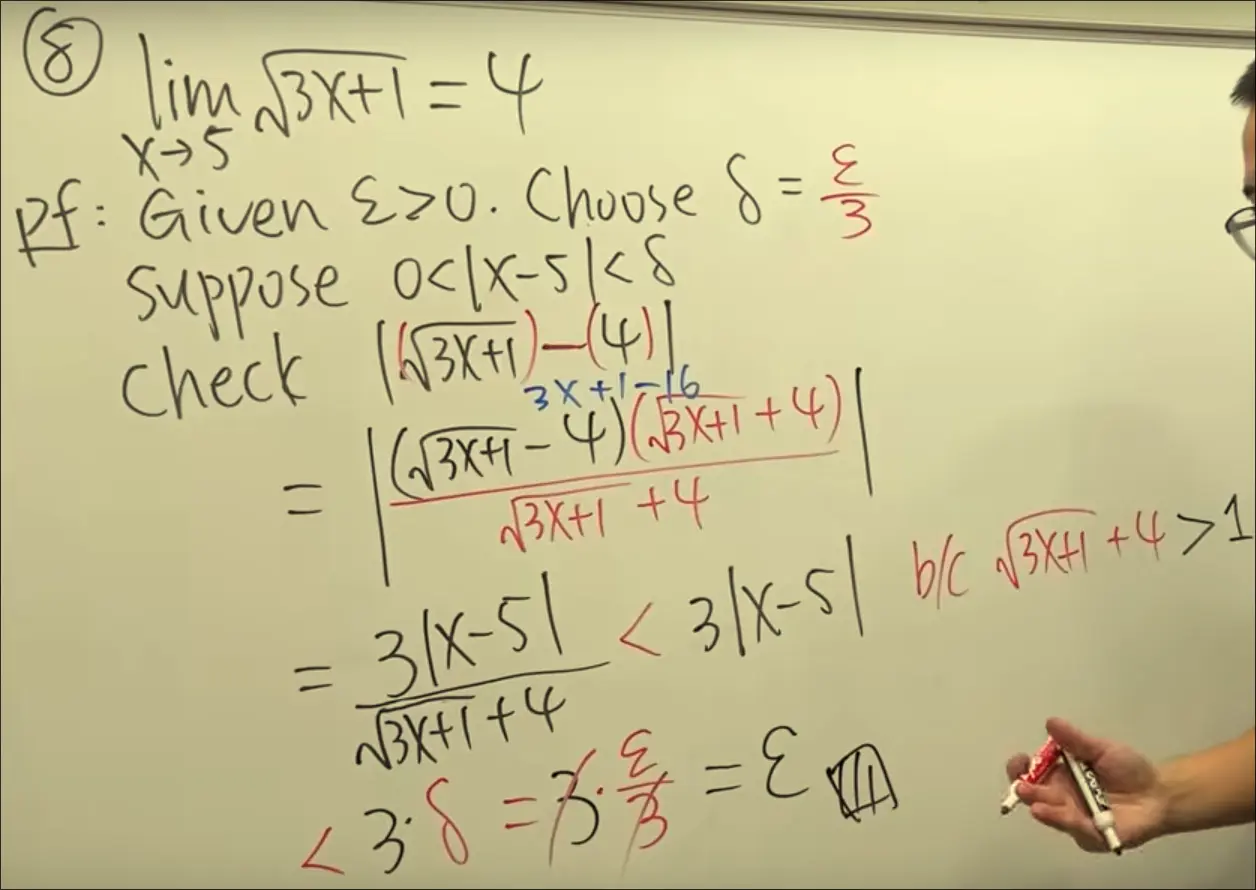 ⑧ lim √(3x+1) = 4
x→5
pf: Given ε>0. Choose δ = ε/3
suppose 0<|x-5|<δ
check |(√(3x+1))-(4)|
3x+1-16
= |(√(3x+1) - 4)(√(3x+1) + 4) / (√(3x+1) + 4)|
= 3|x-5| / (√(3x+1) + 4) < 3|x-5| b/c √(3x+1) + 4 > 1
< 3·δ = 3·ε/3 = ε